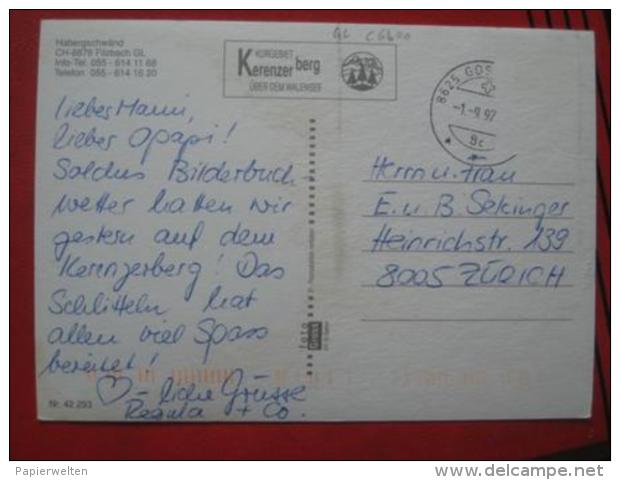 Habergschwänd
CH-8876 Filzbach GL
Info-Tel. 055 - 614 11 68
Telefon 055 - 614 16 20
GL
KURGEBIET
Kerenzerberg
ÜBER DEM WALENSEE
8625 GOS
-1.-9.97
liebes Mami,
lieber Opapi!
Solches Bilderbuch-
wetter hatten wir
gestern auf dem
Kerenzerberg! Das
Schlitteln hat
allen viel Spass
bereitet!
♡-liche Grüsse
Regula + Co.
Herrn u. Frau
E. u. B. Sekinger
Heinrichstr. 139
8005 ZÜRICH
foto
Gross
Nr. 42 293
Papierwelten
delcampe.net